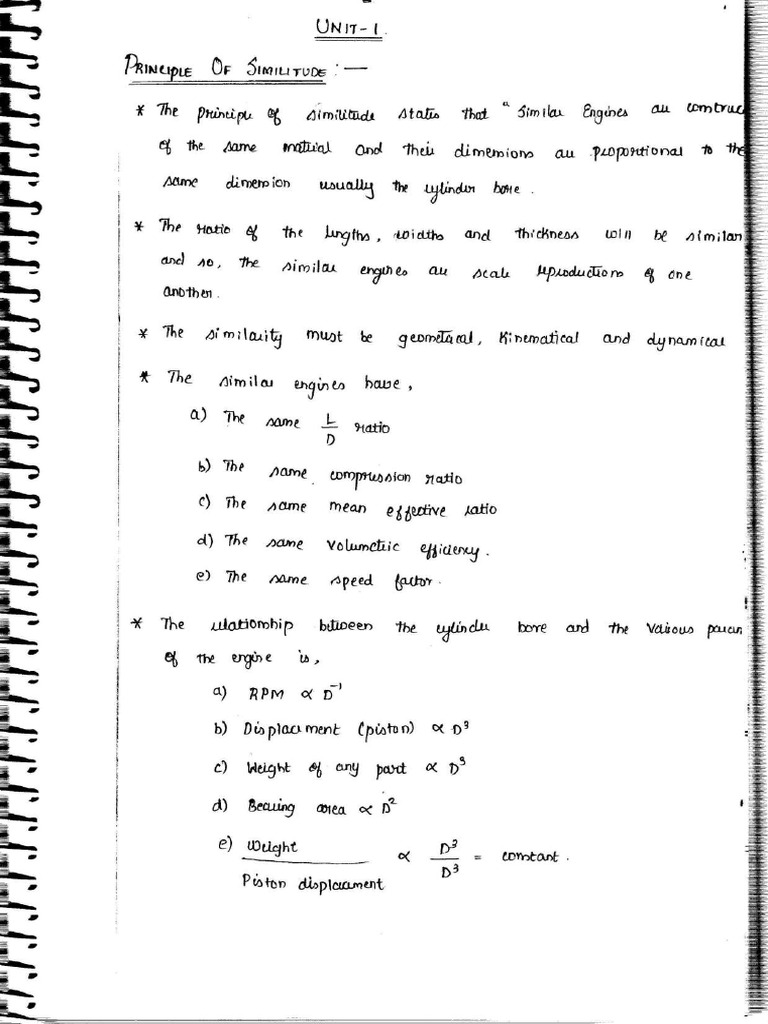 UNIT-1.
PRINCIPLE OF SIMILITUDE :—
* The principle of similitude states that "Similar Engines are construc
of the same material and their dimensions are proportional to the
same dimension usually the cylinder bore.
* The ratio of the lengths, widths and thickness will be similar
and so, the similar engines are scale reproductions of one
another.
* The similarity must be geometrical, Kinematical and dynamical
* The similar engines have,
a) The same L/D ratio
b) The same compression ratio
c) The same mean effective ratio
d) The same volumetric efficiency.
e) The same speed factor.
* The relationship between the cylinder bore and the various param
of the engine is,
a) RPM ∝ D⁻¹
b) Displacement (piston) ∝ D³
c) Weight of any part ∝ D³
d) Bearing area ∝ D²
e) Weight / Piston displacement ∝ D³/D³ = constant.